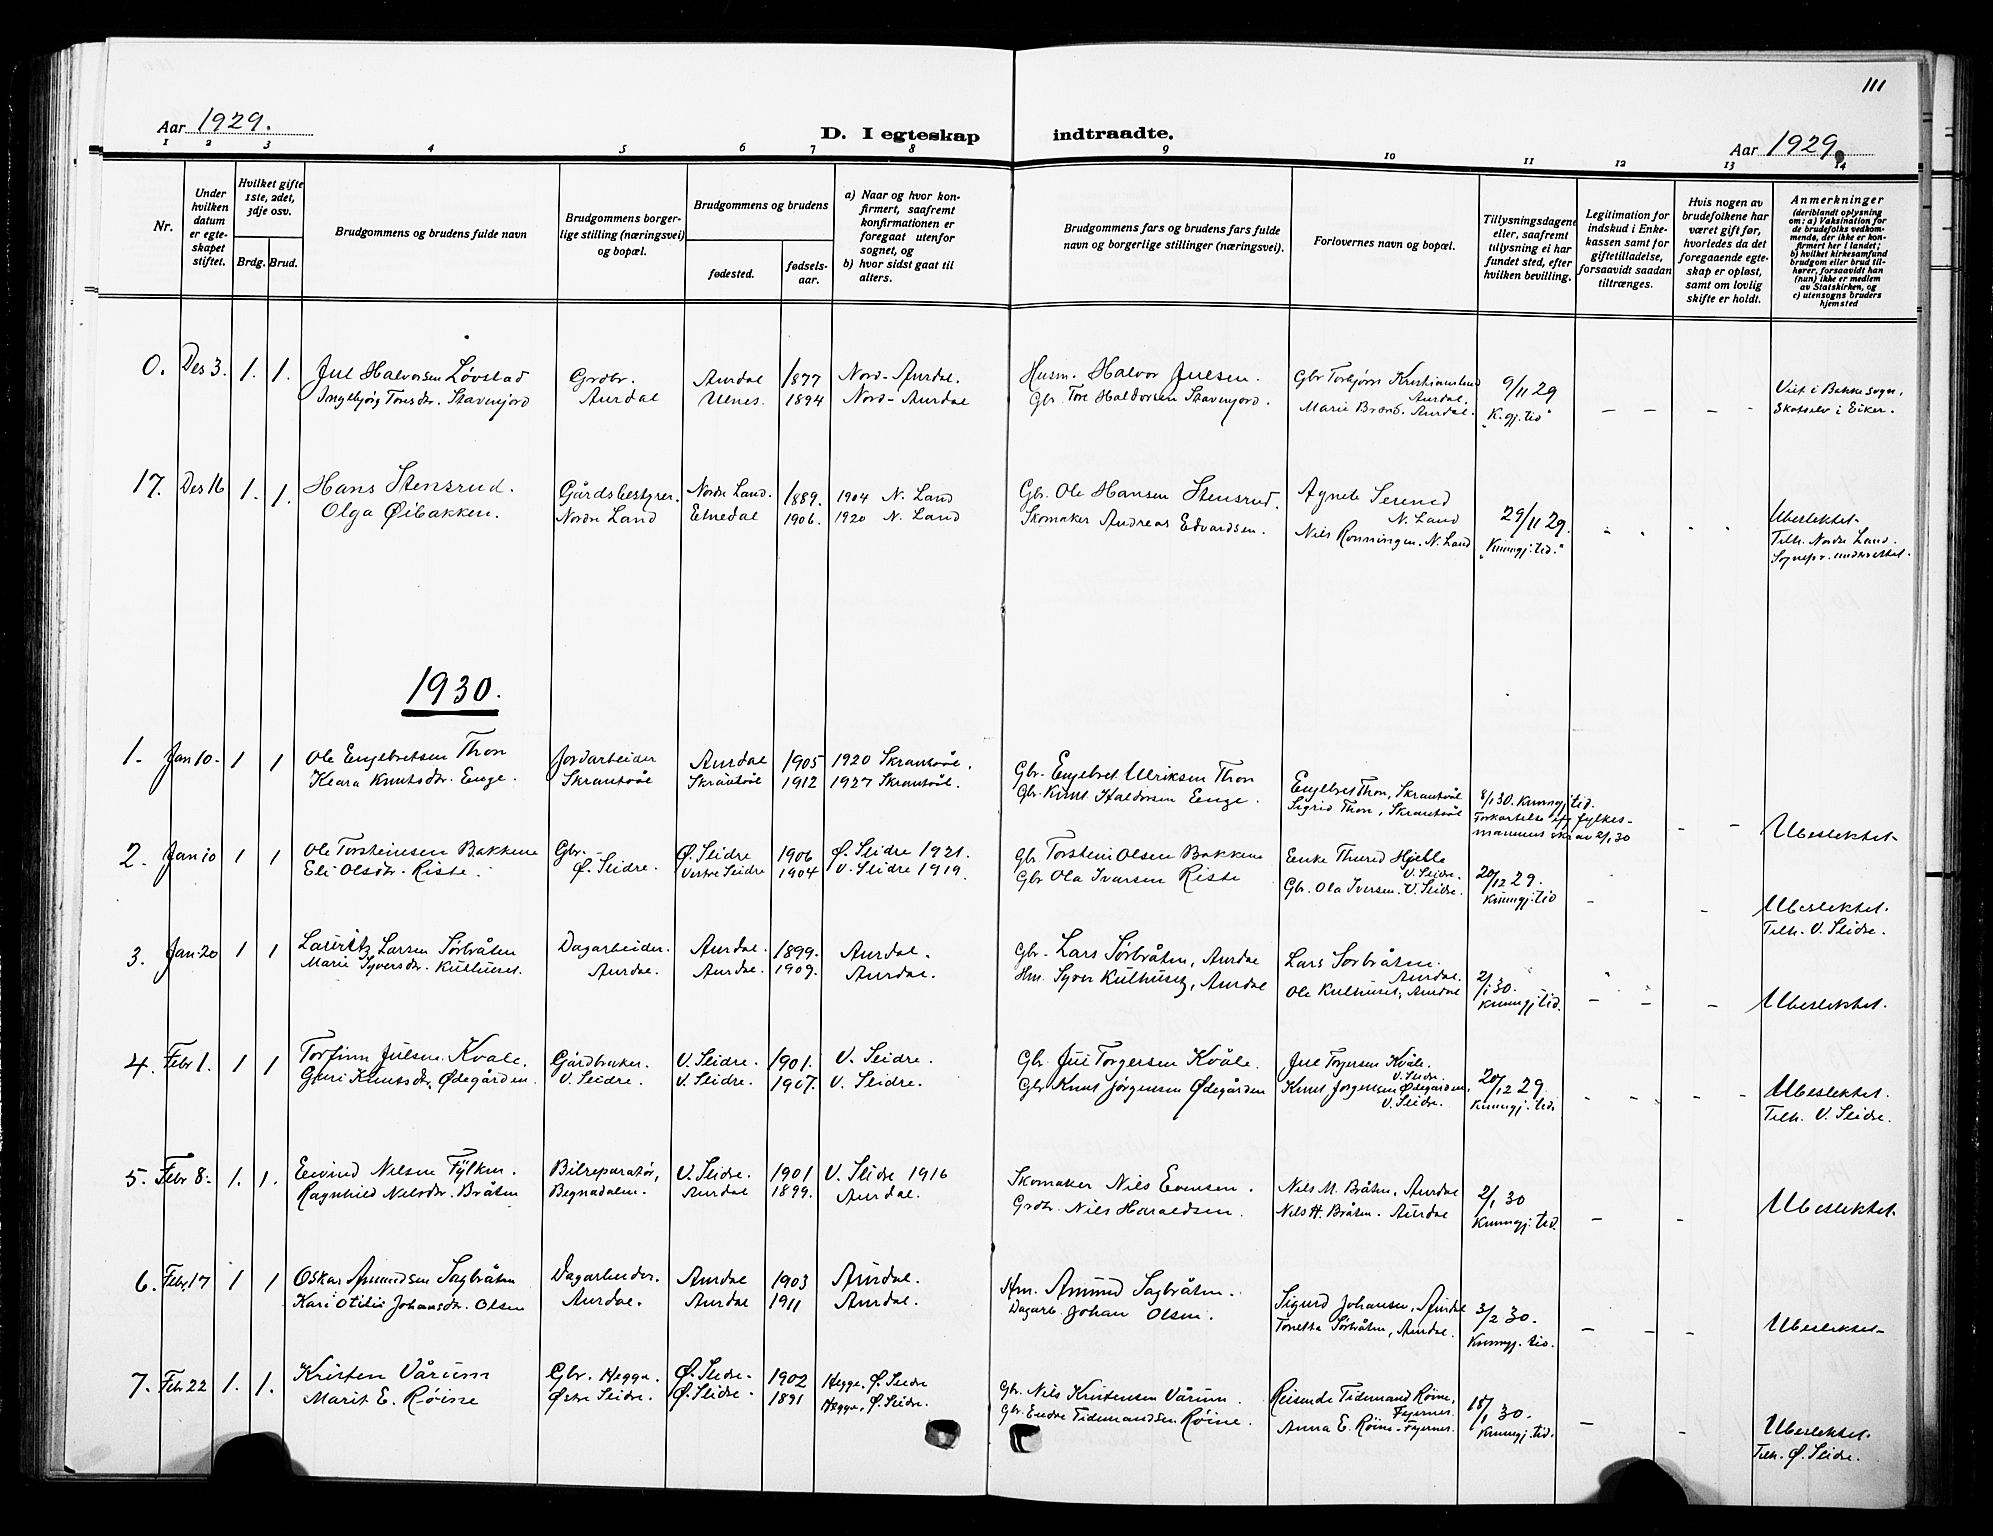 111
Aar 1929.
D. I egteskap indtraadte.
Aar 1929.
1 2 3 4 5 6 7 8 9 10 11 12 13 14
Nr.
Under hvilken datum er egteskapet stiftet.
Hvilket gifte 1ste, 2det, 3dje osv.
Brdg. Brud.
Brudgommens og brudens fulde navn
Brudgommens borgerlige stilling (næringsvei) og bopæl.
Brudgommens og brudens
fødested.
fødselsaar.
a) Naar og hvor konfirmert, saafremt konfirmationen er foregaat utenfor sognet, og
b) hvor sidst gaat til alters.
Brudgommens fars og brudens fars fulde navn og borgerlige stillinger (næringsvei).
Forlovernes navn og bopæl.
Tillysningsdagene eller, saafremt tillysning ei har fundet sted, efter hvilken bevilling.
Legitimation for indskud i Enkekassen samt for giftetilladelse, forsaavidt saadan tiltrænges.
Hvis nogen av brudefolkene har været gift før, hvorledes da det foregaaende egteskap er opløst, samt om lovlig skifte er holdt.
Anmerkninger
(deriblandt oplysning om: a) Vaksination for de brudefolks vedkommende, der ikke er konfirmert her i landet; b) hvilket kirkesamfund brudgom eller brud tilhører, forsaavidt han (hun) ikke er medlem av Statskirken, og c) utensogns bruders hjemsted
0. Des 3. 1. 1. Jul Halvorsen Løvstad Grdbr. Aurdal 1877 Nord-Aurdal. Husm. Halvor Julsen. Gbr Torbjørn Kristianslund 9/11 29 Viet i Bakke sogn,
Ingebjørg Toresdr. Stavenjord Aurdal Ulnes. 1894 Nord-Aurdal Gbr. Tore Haldorsen Stavenjord. Aurdal. Marie Brænd. Aurdal. "K.gj.tid" – – – - Skotselv i Eiker.
17. Des 16 1. 1. Hans Stensrud. Gårdsbestyrer. Nordre Land. 1889. 1904 N. Land Gbr. Ole Hansen Stensrud. Agnete N. Land 29/11 29. Ubeslektet.
Olga Øibakken. Nordre Land Etnedal 1906. 1920 N. Land Skomaker Andreas Edvardsen. Nils Rønningen. N. Land "Kunngj.tid." Tilh. Nordre Land.
Sognepr. underrettet.
1930.
1. Jan 10. 1 1 Ole Engebretsen Thon Jordarbeider Aurdal 1905 1920 Skrautvål. Gbr. Engebret Ulriksen Thon Engebret Thon, Skrautvål 8/1 30. Kunngj.tid.
Klara Knutsdr. Enge. Skrautvål Skrautvål 1912 1927 Skrautvål. Gbr. Knut Haldorsen Enge. Sigrid Thon, Skrautvål Forkortelse fylkesmannens av 2/1 30 – – Ubeslektet.
2. Jan 10 1 1 Ole Torsteinsen Bakkene Gbr. Ø. Slidre 1906 Ø. Slidre 1921. Gbr Torstein Olsen Bakkene Enke Thurid Hjelle V. Slidre. 20/12 29. Ubeslektet.
Eli Olsdr. Riste. Ø. Slidre. Vestre Slidre 1904 V. Slidre 1919. Gbr Ola Ivarsen Riste Gbr. Ola Iversen. V. Slidre. Kunngj.tid – – Tilh. V. Slidre.
3. Jan 20 1 1 Lauritz Larsen Sørbråten Dagarbeider. Aurdal. 1899. Aurdal. Gbr. Lars Sørbråten, Aurdal Lars Sørbråten. Aurdal. 2/1 30.
Marie Syversdr. Kulhuset. Aurdal. Aurdal. 1909. Aurdal. Hm. Syver Kulhuset, Aurdal Ole Kulhuset, Aurdal Kunngj.tid. – – – Ubeslektet.
4. Febr 1. 1 1 Torfinn Julsen Kvale. Gårdbruker. V. Slidre. 1901. V. Slidre. Gbr. Jul Torgersen Kvåle. Jul Torgersen Kvåle. V. Slidre. 20/12 29. Ubeslektet.
Guri Knutsdr. Ødegården. V. Slidre. V. Slidre. 1907. V. Slidre. Gbr. Knut Jørgensen Ødegården Knut Jørgensen Ødegården, V. Slidre. Kunngj.tid. - - - - Tilh. V. Slidre.
5. Febr 8. 1. 1. Eivind Nilsen Fylken. Bilreparatør, V. Slidre. 1901 V. Slidre 1916 Skomaker Nils Evensen. Nils M. Bråten, Aurdal 2/1 30
Ragnhild Nelsdr. Bråten Begnadalen. Aurdal 1899. Aurdal. Grdbr. Nils Haraldsen. Nils H. Bråten. Aurdal Kunngj.tid. – – Ubeslektet.
6. Febr. 17 1 1 Oskar Amundsen Sagbråten Dagarbeider. Aurdal 1903 Aurdal. Hm. Amund Sagbråten. Sigurd Johansen, Aurdal 3/2 30.
Kari Otilie Johansdr. Olsen Aurdal. Aurdal 1911 Aurdal. Dagarb. Johan Olsen. Tonetta Sørbråten, Aurdal. Kunngj.tid. – – – Ubeslektet.
7. Febr 22 1. 1. Kristen Vårum Gbr. Hegge. Ø. Slidre. 1902 Hegge, Ø. Slidre Gbr. Nils Kristensen Vårum. Reisende Tidemand Røine, Fagernes. 18/1 30. Ubeslektet.
Marit E. Røine Østre Slidre. Ø. Slidre. 1891 Hegge, Ø. Slidre. Gbr. Endre Tidemandsen Røine. Anna E. Røine - Fagernes. Kunngj.tid. – – Tilh. Ø. Slidre.